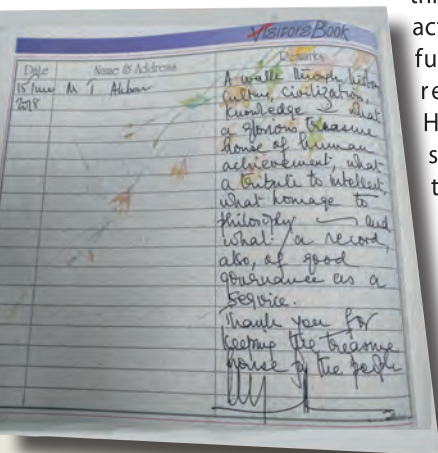 Visitors Book
Date Name & Address Remarks
15 June M J Akbar
2018
A walk through history
culture, civilization,
knowledge — what
a glorious treasure
house of human
achievement, what
a tribute to intellect,
what homage to
philosophy — and
what a record,
also, of good
governance as a
service.
Thank you for
keeping the treasure
house of the people
act
fu
re
H
s
t